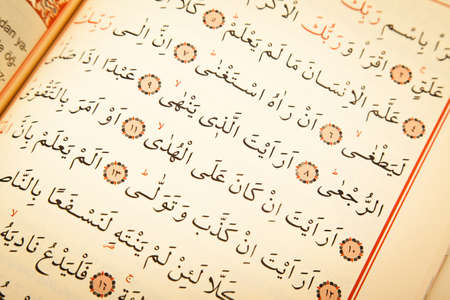 dan ya-
رَأْ بِاسْمِ رَبِّكَ
عَلَقٍ ٢ اِقْرَأْ وَرَبُّكَ الْاَكْرَ
٤ عَلَّمَ الْاِنْسَانَ مَا لَمْ يَعْلَمْ ٥
لَيَطْغٰى ٦ اَنْ رَاٰهُ اسْتَغْنٰى ٧ اِنَّ اِلٰى رَبِّكَ
الرُّجْعٰى ٨ اَرَاَيْتَ الَّذٖى يَنْهٰى ٩ عَبْدًا اِذَا صَلّٰى
١٠ اَرَاَيْتَ اِنْ كَانَ عَلَى الْهُدٰى ١١ اَوْ اَمَرَ بِالتَّقْوٰى
١٢ اَرَاَيْتَ اِنْ كَذَّبَ وَتَوَلّٰى ١٣ اَلَمْ يَعْلَمْ بِاَنَّ
كَلَّا لَئِنْ لَمْ يَنْتَهِ لَنَسْفَعًا بِالنَّاصِ
١٦ فَلْيَدْعُ نَادِيَهُ